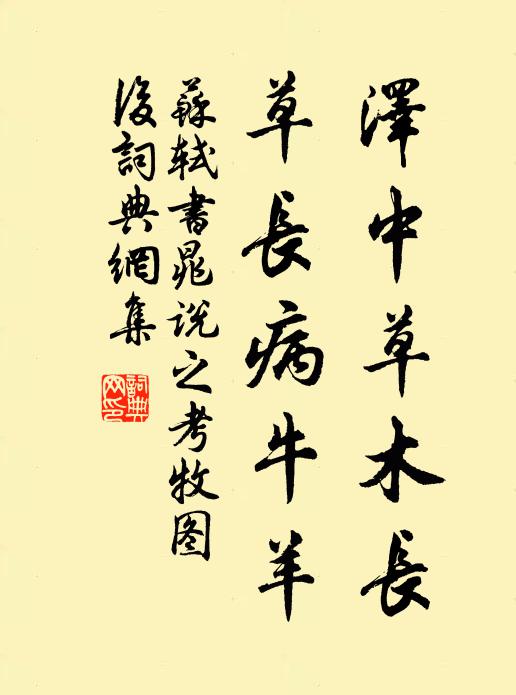 澤中草木長
草長病牛羊
蘇軾書晁説之考牧图
後詞典網集
詞典網印